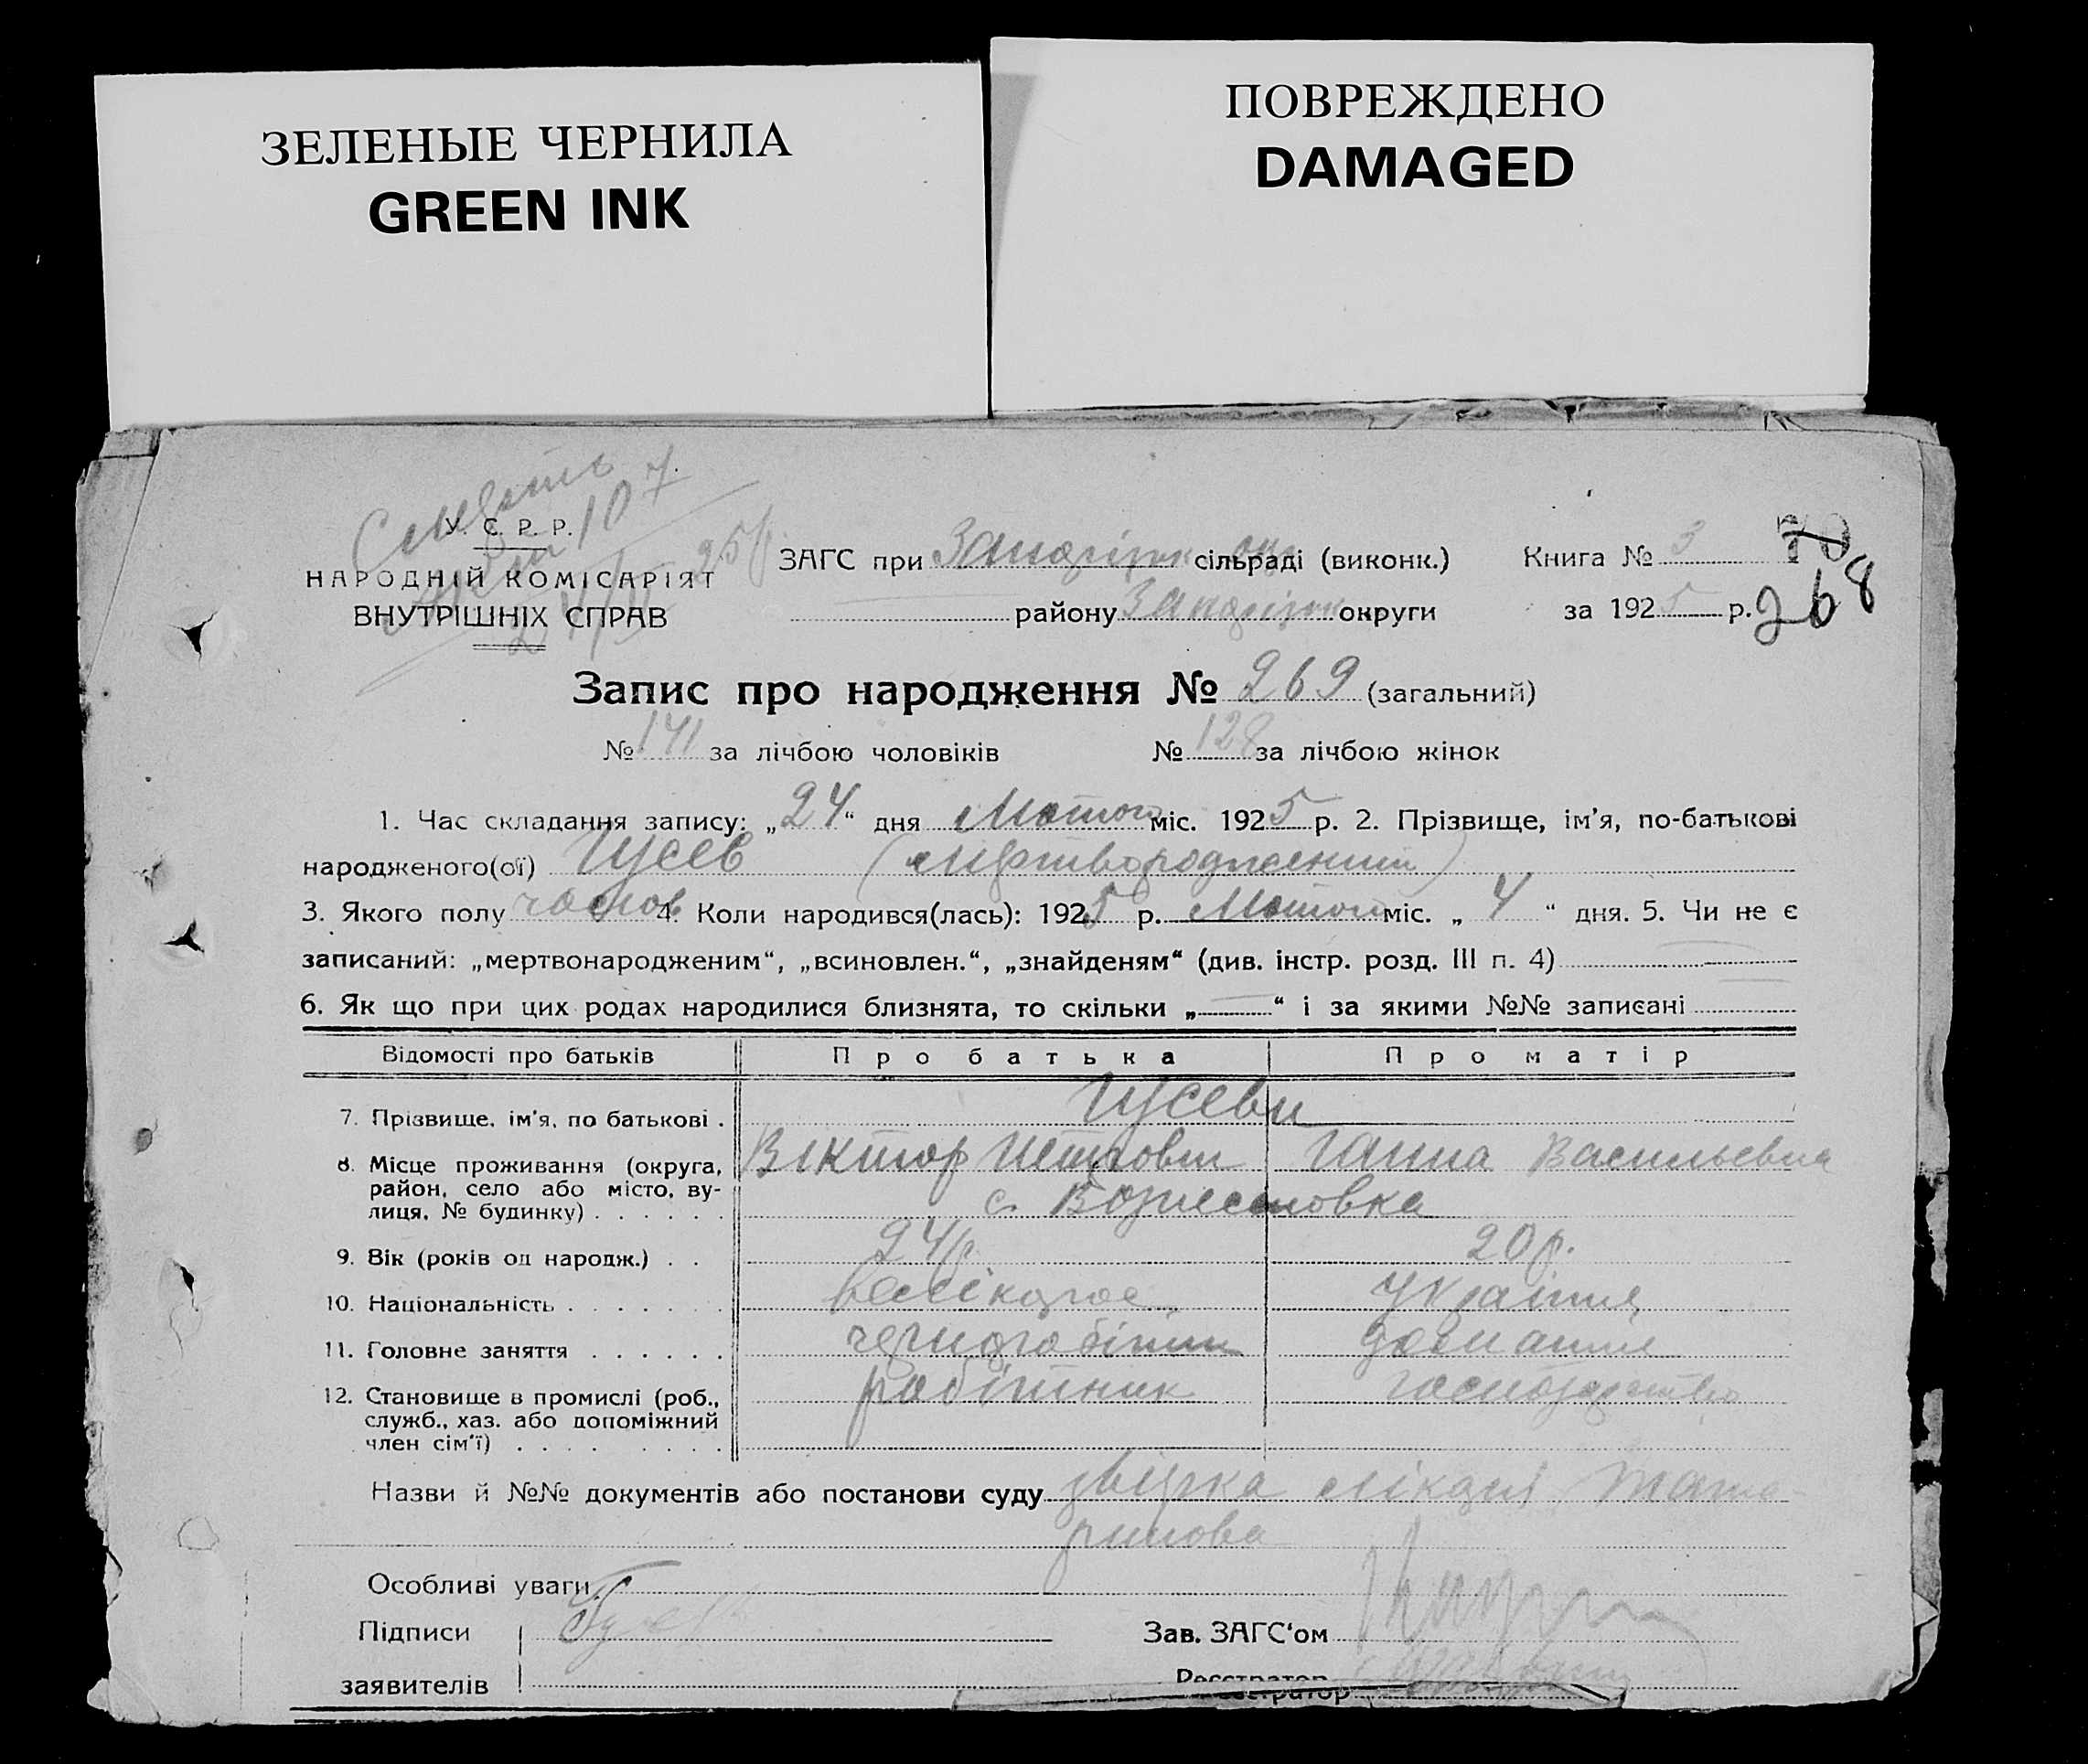 ЗЕЛЕНЫЕ ЧЕРНИЛА
GREEN INK
ПОВРЕЖДЕНО
DAMAGED
Смерть
107
У. С. Р. Р.
НАРОДНІЙ КОМІСАРІЯТ
ВНУТРІШНІХ СПРАВ
ЗАГС при Запоріжк. окр сільраді (виконк.) Книга № 3 70
району Запоріжк округи за 1925 р. 268
Запис про народження № 269 (загальний)
№ 141 за лічбою чоловіків № 128 за лічбою жінок
1. Час складання запису: „24“ дня Лютого міс. 1925 р. 2. Прізвище, ім'я, по-батькові
народженого(ої) Гусев (мертворожденний)
3. Якого полу чолов 4. Коли народився(лась): 1925 р. Лютого міс. „4“ дня. 5. Чи не є
записаний: „мертвонародженим“, „всиновлен.“, „знайденям“ (див. інстр. розд. III п. 4)
6. Як що при цих родах народилися близнята, то скільки „ “ і за якими №№ записані
Відомості про батьків Про батька Про матір
7. Прізвище, ім'я, по батькові . Гусеви
Віктор Петрович Ганна Васильевна
8. Місце проживання (округа,
район, село або місто, ву-
лиця, № будинку) . . . . . . с. Вознесеновка
9. Вік (років од народж.) . . 24 р. 20 р.
10. Національність . . . . . . . великорос Українка
11. Головне заняття . . . . . . чорноробітник домашнє
12. Становище в промислі (роб.,
служб., хаз. або допоміжний
член сім'ї) . . . . . . . . робітник господарство
Назви й №№ документів або постанови суду довідка лікаря
Особливі уваги
Підписи Гусев Зав. ЗАГС'ом
заявителів Реєстратор